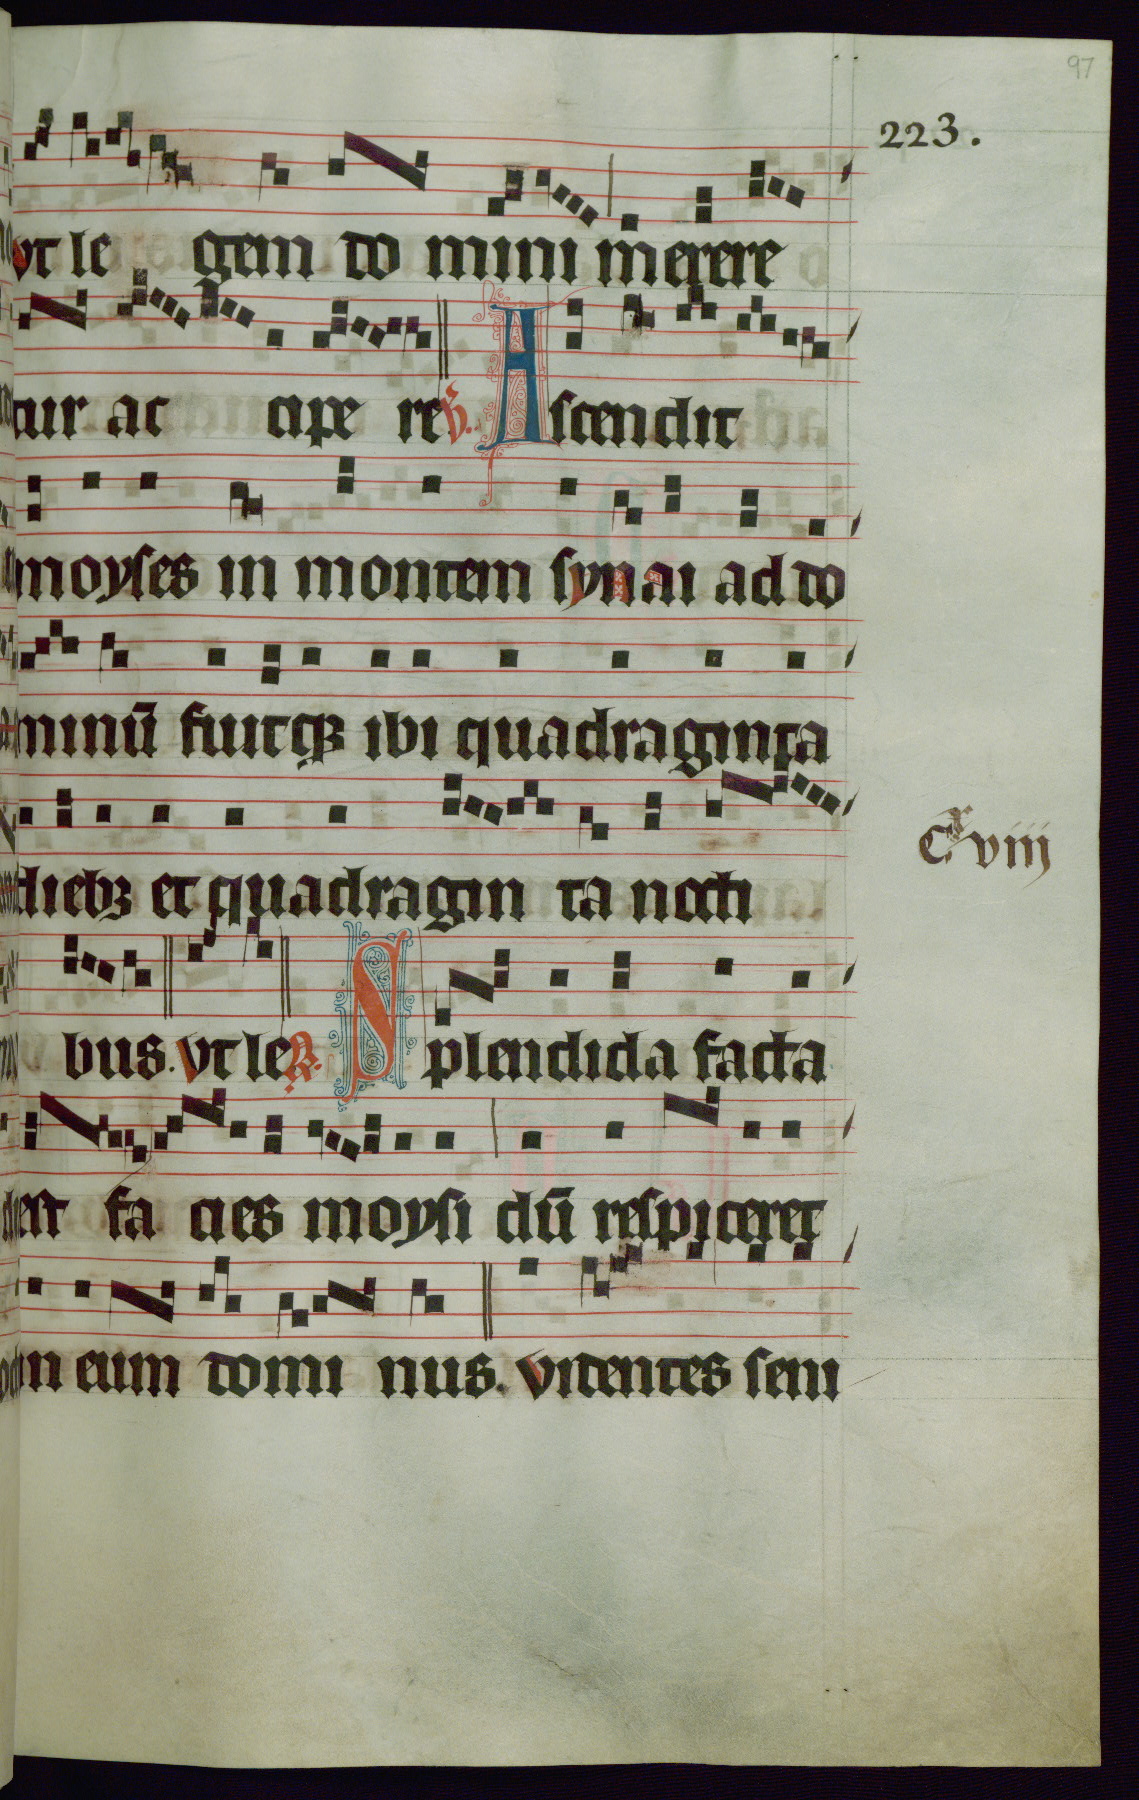 97
223.
ut le gem do mini merere
tur ac cipe re ℣. Ascendit
moyses in montem synai ad do
minū fuitqꝫ ibi quadraginta
diebꝫ et quadragin ta nocti
Cxviij
bus. ut le ℟. Splendida facta
est fa cies moysi dū respiceret
in eum domi nus. Videntes seni